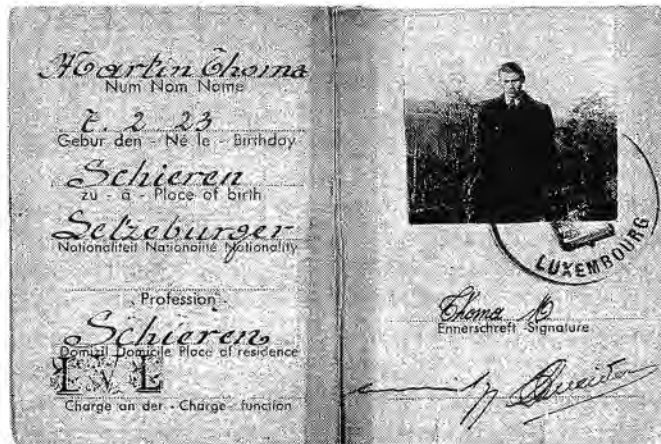 Martin Thoma
Num Nom Name
7. 2 23
Gebur den - Né le - Birthday
Schieren
zu - à - Place of birth
Letzeburger
Nationaliteit Nationalité Nationality
Profession
Schieren
Domizil Domicile Place of residence
LVL
Charge an der - Charge - function
LUXEMBOURG
Thoma M
Ennerschreft - Signature